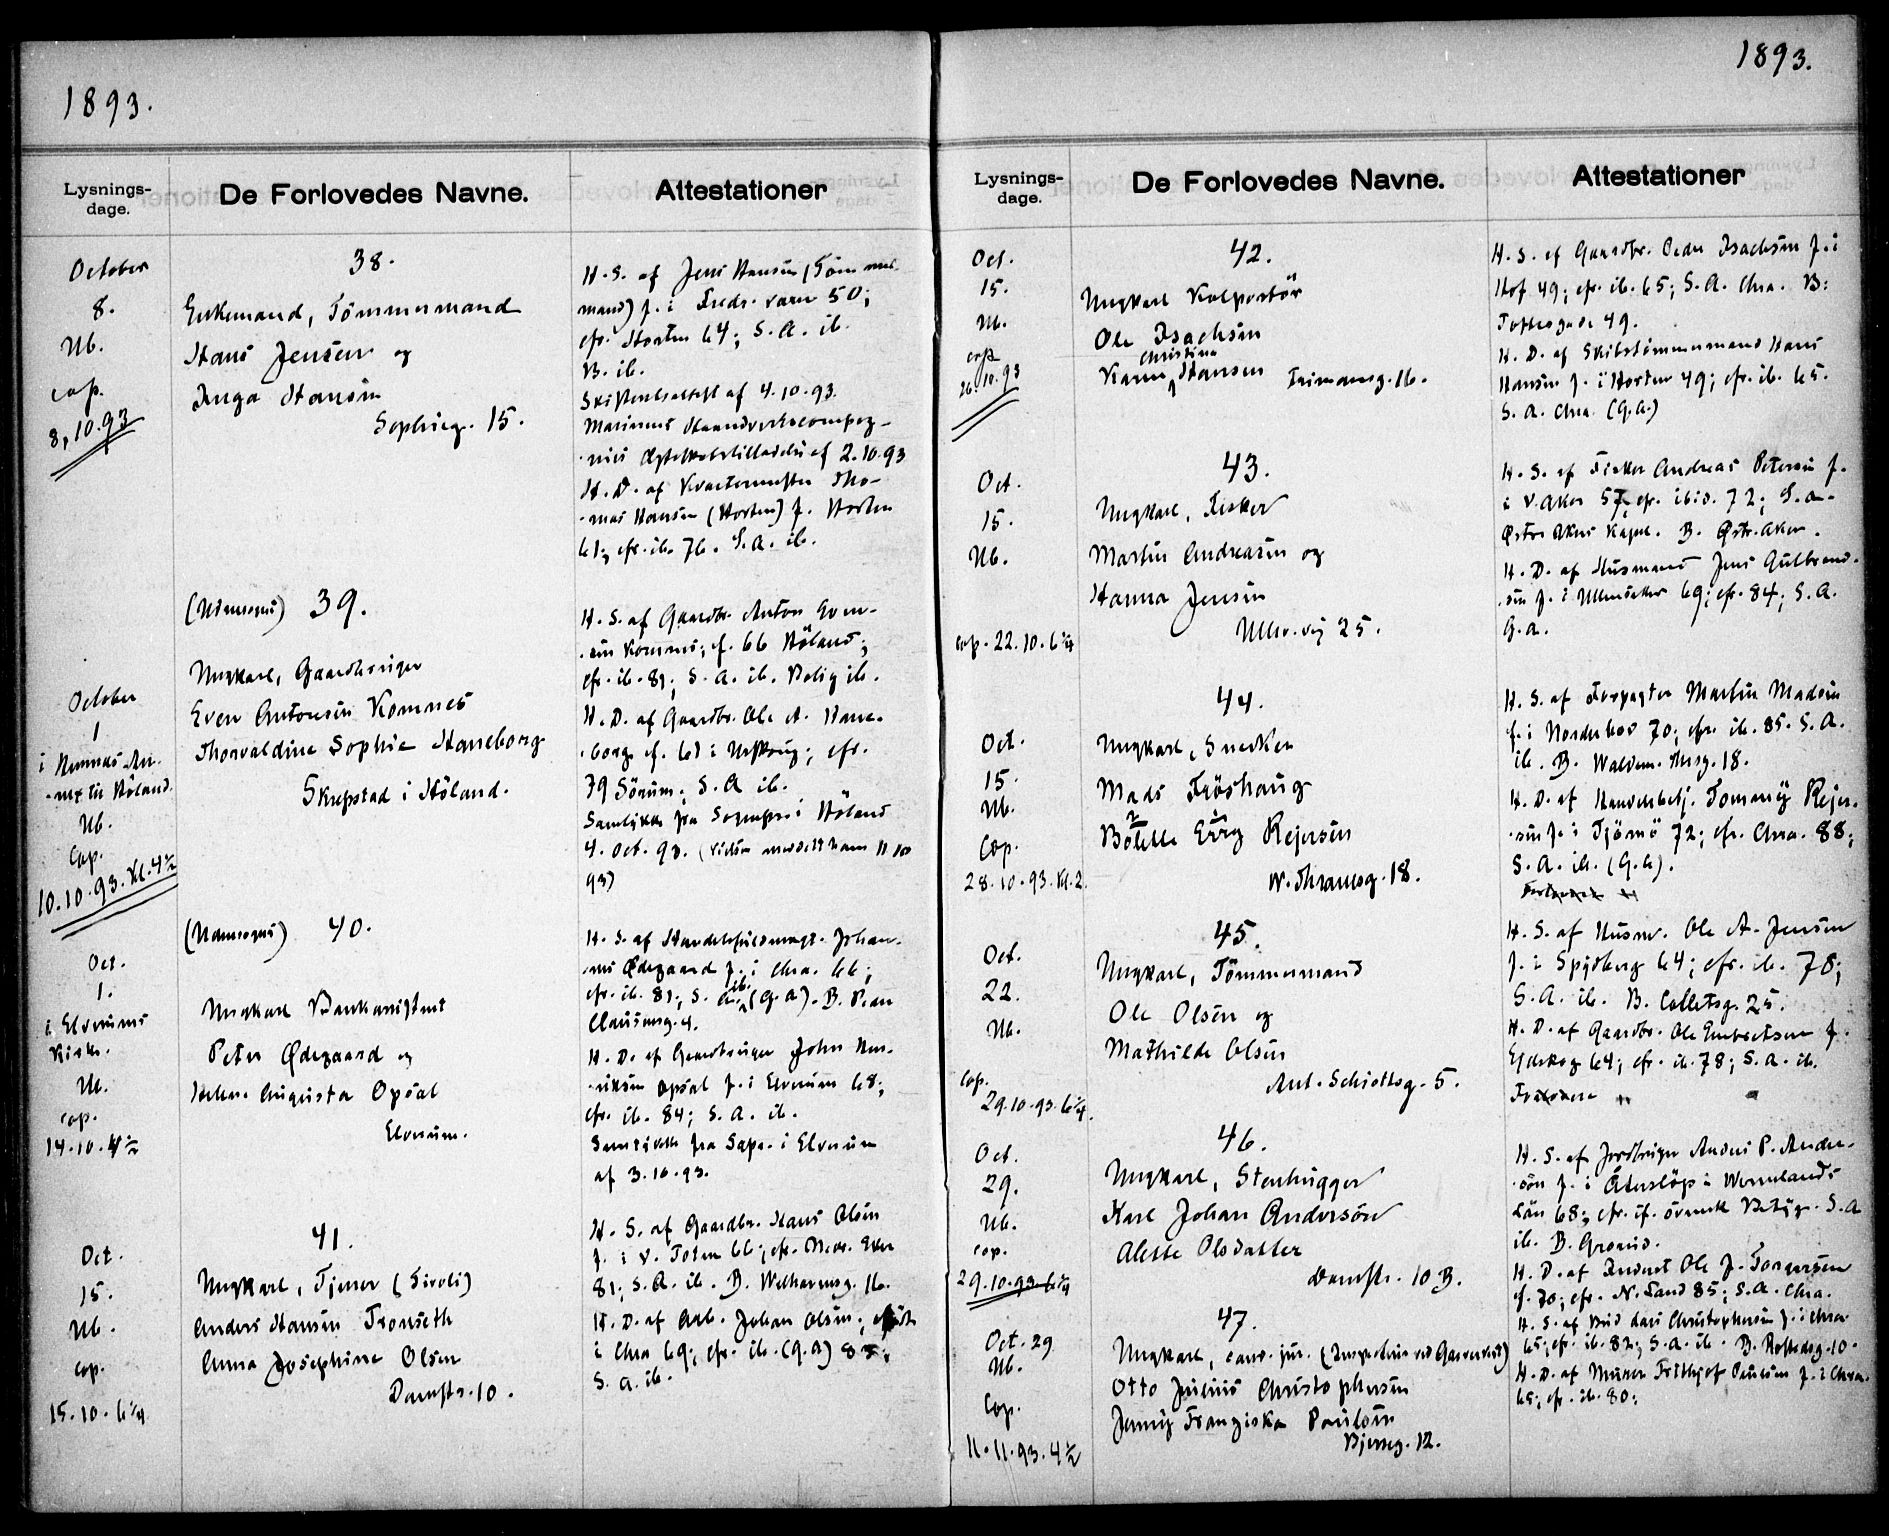 1893.
Lysnings-
dage.
De Forlovedes Navne.
Attestationer
October
8.
Ub.
cop.
8,10.93
38.
Enkemand, Tömmermand
Hans Jensen og
Inga Hansen
Sophieg. 15.
H. S. af Jens Hansen (Tömmer-
mand) f. i Fredr.værn 50;
cfr. Horten 64; S. A. ib.
B. ib.
Skifteretsattest af 4.10.93.
af 2.10.93
H. D. af Kvartermester Tho-
mas Hansen (Horten) f. Horten
61; cfr. ib. 76. S. A. ib.
October
1
Ub.
Cop.
10.10.93. Kl. 4½
(Udensogns) 39.
Ungkarl, Gaardbruger
Even Antonsen Komnes
Thorvaldine Sophie Haneborg
Skrepstad i Höland.
H. S. af Gaardbr. Anton Even-
sen Komnes; f. 66 Höland;
cfr. ib. 81; S. A. ib. Bolig ib.
H. D. af Gaardbr. Ole A. Hane-
borg f. 61 i Urskoug; cfr.
79 Sörum; S. A ib.
Samtykke fra Sognepr. i Höland
4. Oct. 93.
93)
Oct.
1.
i Elverums
Kirke.
Ub.
cop.
14.10.4½
(Udensogns) 40.
Ungkarl Bankassistent
Peter Ødegaard og
Augusta Opsal
Elverum.
H. S. af Handelsfuldmægt. Johan-
nes Ødegaard f. i Chra. 66;
cfr. ib. 81; S. A. ib. (G. a). B. Peder
Clausensg. 4.
H. D. af Gaardbruger John
Opsal f. i Elverum 68;
cfr. ib. 84; S. A. ib.
Samtykke fra Sogpr. i Elverum
af 3.10.93.
Oct.
15.
Ub.
cop.
15.10. 6¼
41.
Ungkarl, Tjener (Tivoli)
Anders Hansen Tronseth
Anna Josephine Olsen
Damstr. 10.
H. S. af Gaardbr. Hans Olsen
f. i V. Toten 66; cfr. Nedr. Eker
81; S. A. ib. B. Welhavensg. 16.
H. D. af Arb. Johan Olsen;
i Chra 69; cfr. ib. (G. a) 85;
S. A. ib.
1893.
Lysnings-
dage.
De Forlovedes Navne.
Attestationer
Oct.
15.
Ub.
cop
26.10.93
42.
Ungkarl Kolportör
Ole Isachsen
Christine
Karen Hansen Frimansg. 16.
H. S. af Gaardbr. Peder Isachsen f. i
Hof 49; cfr. ib. 65; S. A. Chra. B:
Toftesgade 49.
H. D. af Skibstömmermand Hans
Hansen f. i Horten 49; cfr. ib. 65.
S. A. Chra. (G. a.)
Oct.
15.
Ub.
cop. 22.10. 6¼
43.
Ungkarl, Fisker
Martin Andreasen og
Hanna Jensen
Ullev. vej 25.
H. S. af Fisker Andreas Petersen f.
i V. Aker 57, cfr. ibid. 72; S. a.
Østre Akers Kapel. B. Østr. Aker.
H. D. af Husmand Jens Gulbrand-
sen f. i Ullensaker 69; cfr. 84; S. A.
G. a.
Oct.
15.
Ub.
Cop.
28.10.93. Kl. 2.
44.
Ungkarl, Snedker
Mads Fröshaug
Evig Rejersen
W. Thranesg. 18.
H. S. af Forpagter Martin Madsen
f. i Norderhov 70; cfr. ib. 85. S. A.
ib. B. Waldem. Thrsg. 18.
H. D. af Handelsbetj. Tommy Rejer-
sen f. i Tjömö 72; cfr. Chra. 88;
S. A. ib. (G. a).
Oct.
22.
Ub.
Cop.
29.10.93. 6¼.
45.
Ungkarl, Tömmermand
Ole Olsen og
Mathilde Olsen
Ant. Schiöttsg. 5.
H. S. af Husm. Ole A. Jensen
f. i Spydberg 64; cfr. ib. 78;
S. A. ib. B. Colletsg. 25.
H. D. af Gaardbr. Ole Embretsen f.
Eidskog 64; cfr. ib. 78; S. A. ib.
Oct.
29.
Ub.
cop.
29.10.93. 6¼
46.
Ungkarl, Stenhugger
Karl Johan Andersön
Alette Olsdatter
Damstr. 10 B.
H. S. af Jordbruger Anders P. Ander-
sön f. i Wermlands
Län 68; cfr. if. svensk Betyg. S. A
ib. B. Grorud.
H. D. af Inderst Ole J. Torgersen
f. 70; cfr. N. Land 85; S. A. Chra.
Oct. 29
Ub.
Cop.
11.11.93. 4½
47.
Ungkarl, cand. jur.
Otto Julius Christophersen
Jenny Franziska Paulsen
Bjerreg. 12.
Christophersen f. i Chra
65; cfr. ib. 82; S. A. ib. B. Roftedsg. 10.
H. D. af Murer Frithjof Paulsen f. i Chra.
65; cfr. ib. 80;